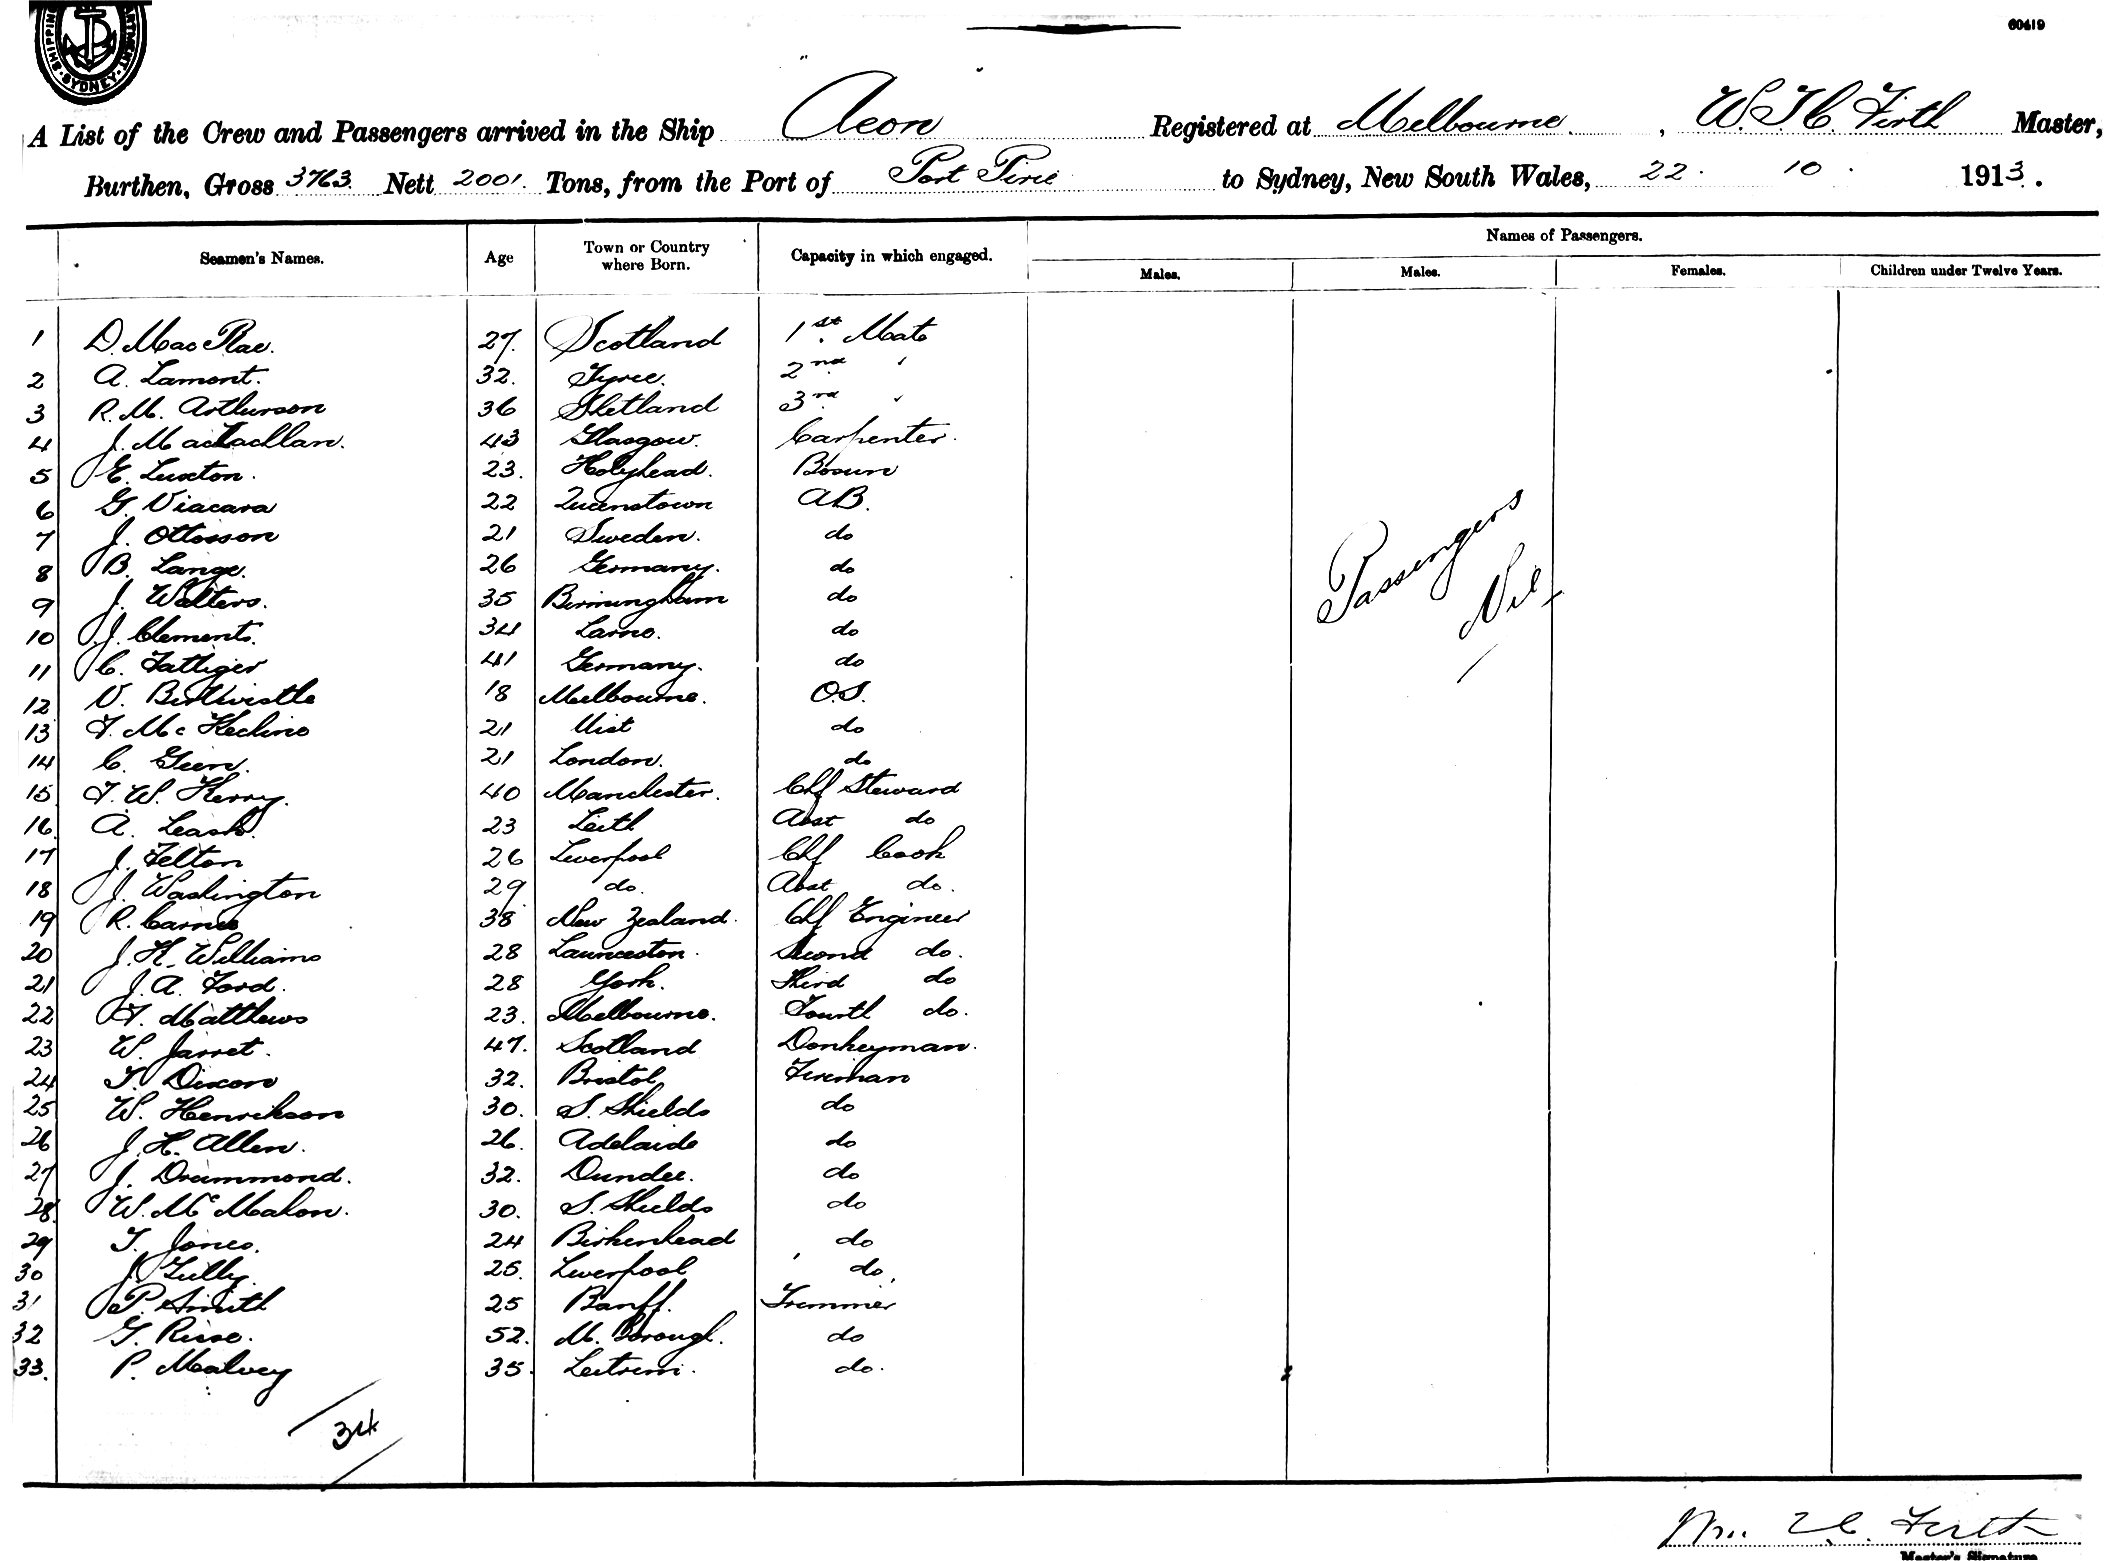 SHIPPING DEPARTMENT SYDNEY
60419
A List of the Crew and Passengers arrived in the Ship Aeon Registered at Melbourne, W. H. C. Firth Master,
Burthen, Gross 3763 Nett 2001 Tons, from the Port of Port Pirie to Sydney, New South Wales, 22. 10. 1913.
Seamen's Names. Age Town or Country where Born. Capacity in which engaged. Names of Passengers.
Males. Males. Females. Children under Twelve Years.
1 D. MacRae. 27. Scotland 1st. Mate
2 A. Lamont. 32. Tyree. 2nd "
3 R. M. Arthurson 36 Shetland 3rd "
4 J. MacLachlan. 43 Glasgow. Carpenter.
5 E. Luxton. 23. Holyhead. Bosun
6 G. Viacara 22 Queenstown AB.
7 J. Ottosson 21 Sweden. do
8 B. Lange. 26 Germany. do
9 J. Walters. 35 Birmingham do
10 J. Clements. 34 Larne. do
11 C. Fattiger 41 Germany. do
12 V. Birtwistle 18 Melbourne. O.S.
13 F. McKechnie 21 Uist do
14 C. 21 London. do
15 F. W. Kerry. 40 Manchester. Chf Steward
16 A. Leask. 23 Leith Asst do
17 J. Felton 26 Liverpool Chf Cook
18 J. Washington 29 do. Asst do.
19 R. Carnie 38 New Zealand. Chf Engineer
20 J. H. Williams 28 Launceston. Second do.
21 J. A. Ford. 28 York. Third do
22 F. Matthews 23. Melbourne. Fourth do.
23 W. Jarret. 47. Scotland Donkeyman.
24 T. Dixon 32. Bristol Fireman
25 W. Henrikson 30. S. Shields do
26 J. H. Allen. 26. Adelaide do
27 J. Drummond. 32. Dundee. do
28 W. McMahon. 30. S. Shields do
29 T. Jones. 24 Birkenhead do
30 J. 25. Liverpool do
31 P. Smith 25 Banff. Trimmer
32 G. 52. M. Borough. do
33. P. Malvey 35. Leitrim. do.
Passengers
Nil
34
Wm H C Firth
Master's Signature